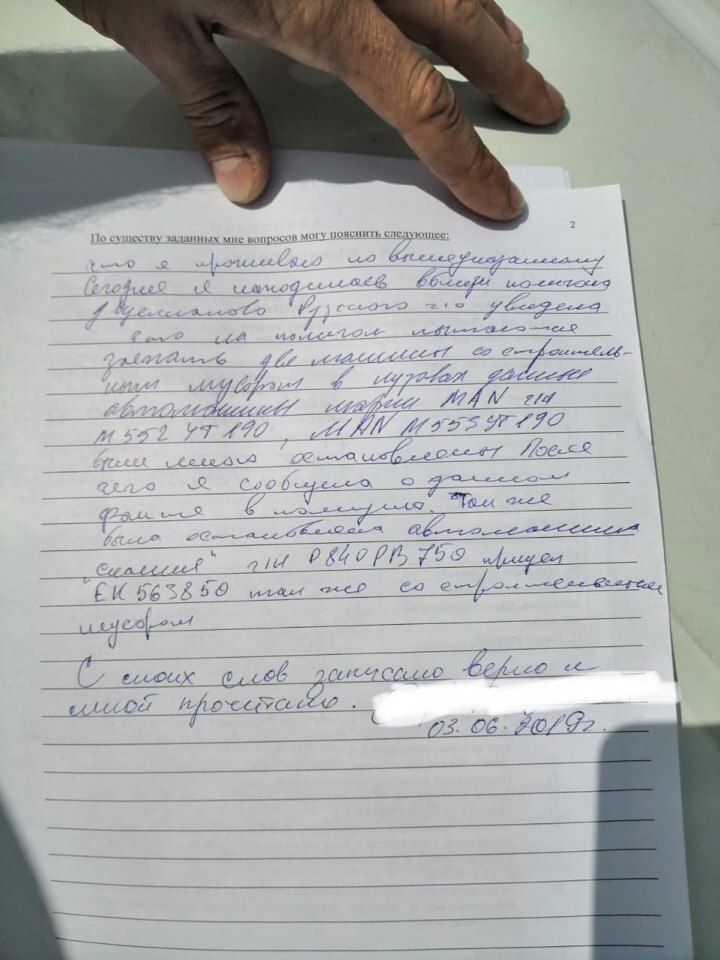 2
По существу заданных мне вопросов могу пояснить следующее:
что я проживаю по вышеуказанному
Сегодня я находилась вблизи полигона
Рузского г/о увидела
что на полигон пытаются
заехать две машины со строитель-
ным мусором в кузовах данные
автомашины марки MAN г/н
М552УТ190, MAN М553УТ190
были мною остановлены После
чего я сообщила о данном
факте в полицию. Так же
была остановлена автомашина
"скания" г/н Р840РВ750 прицеп
ЕК563850 так же со строительным
мусором
С моих слов записано верно и
мной прочитано.
03.06.2019г.